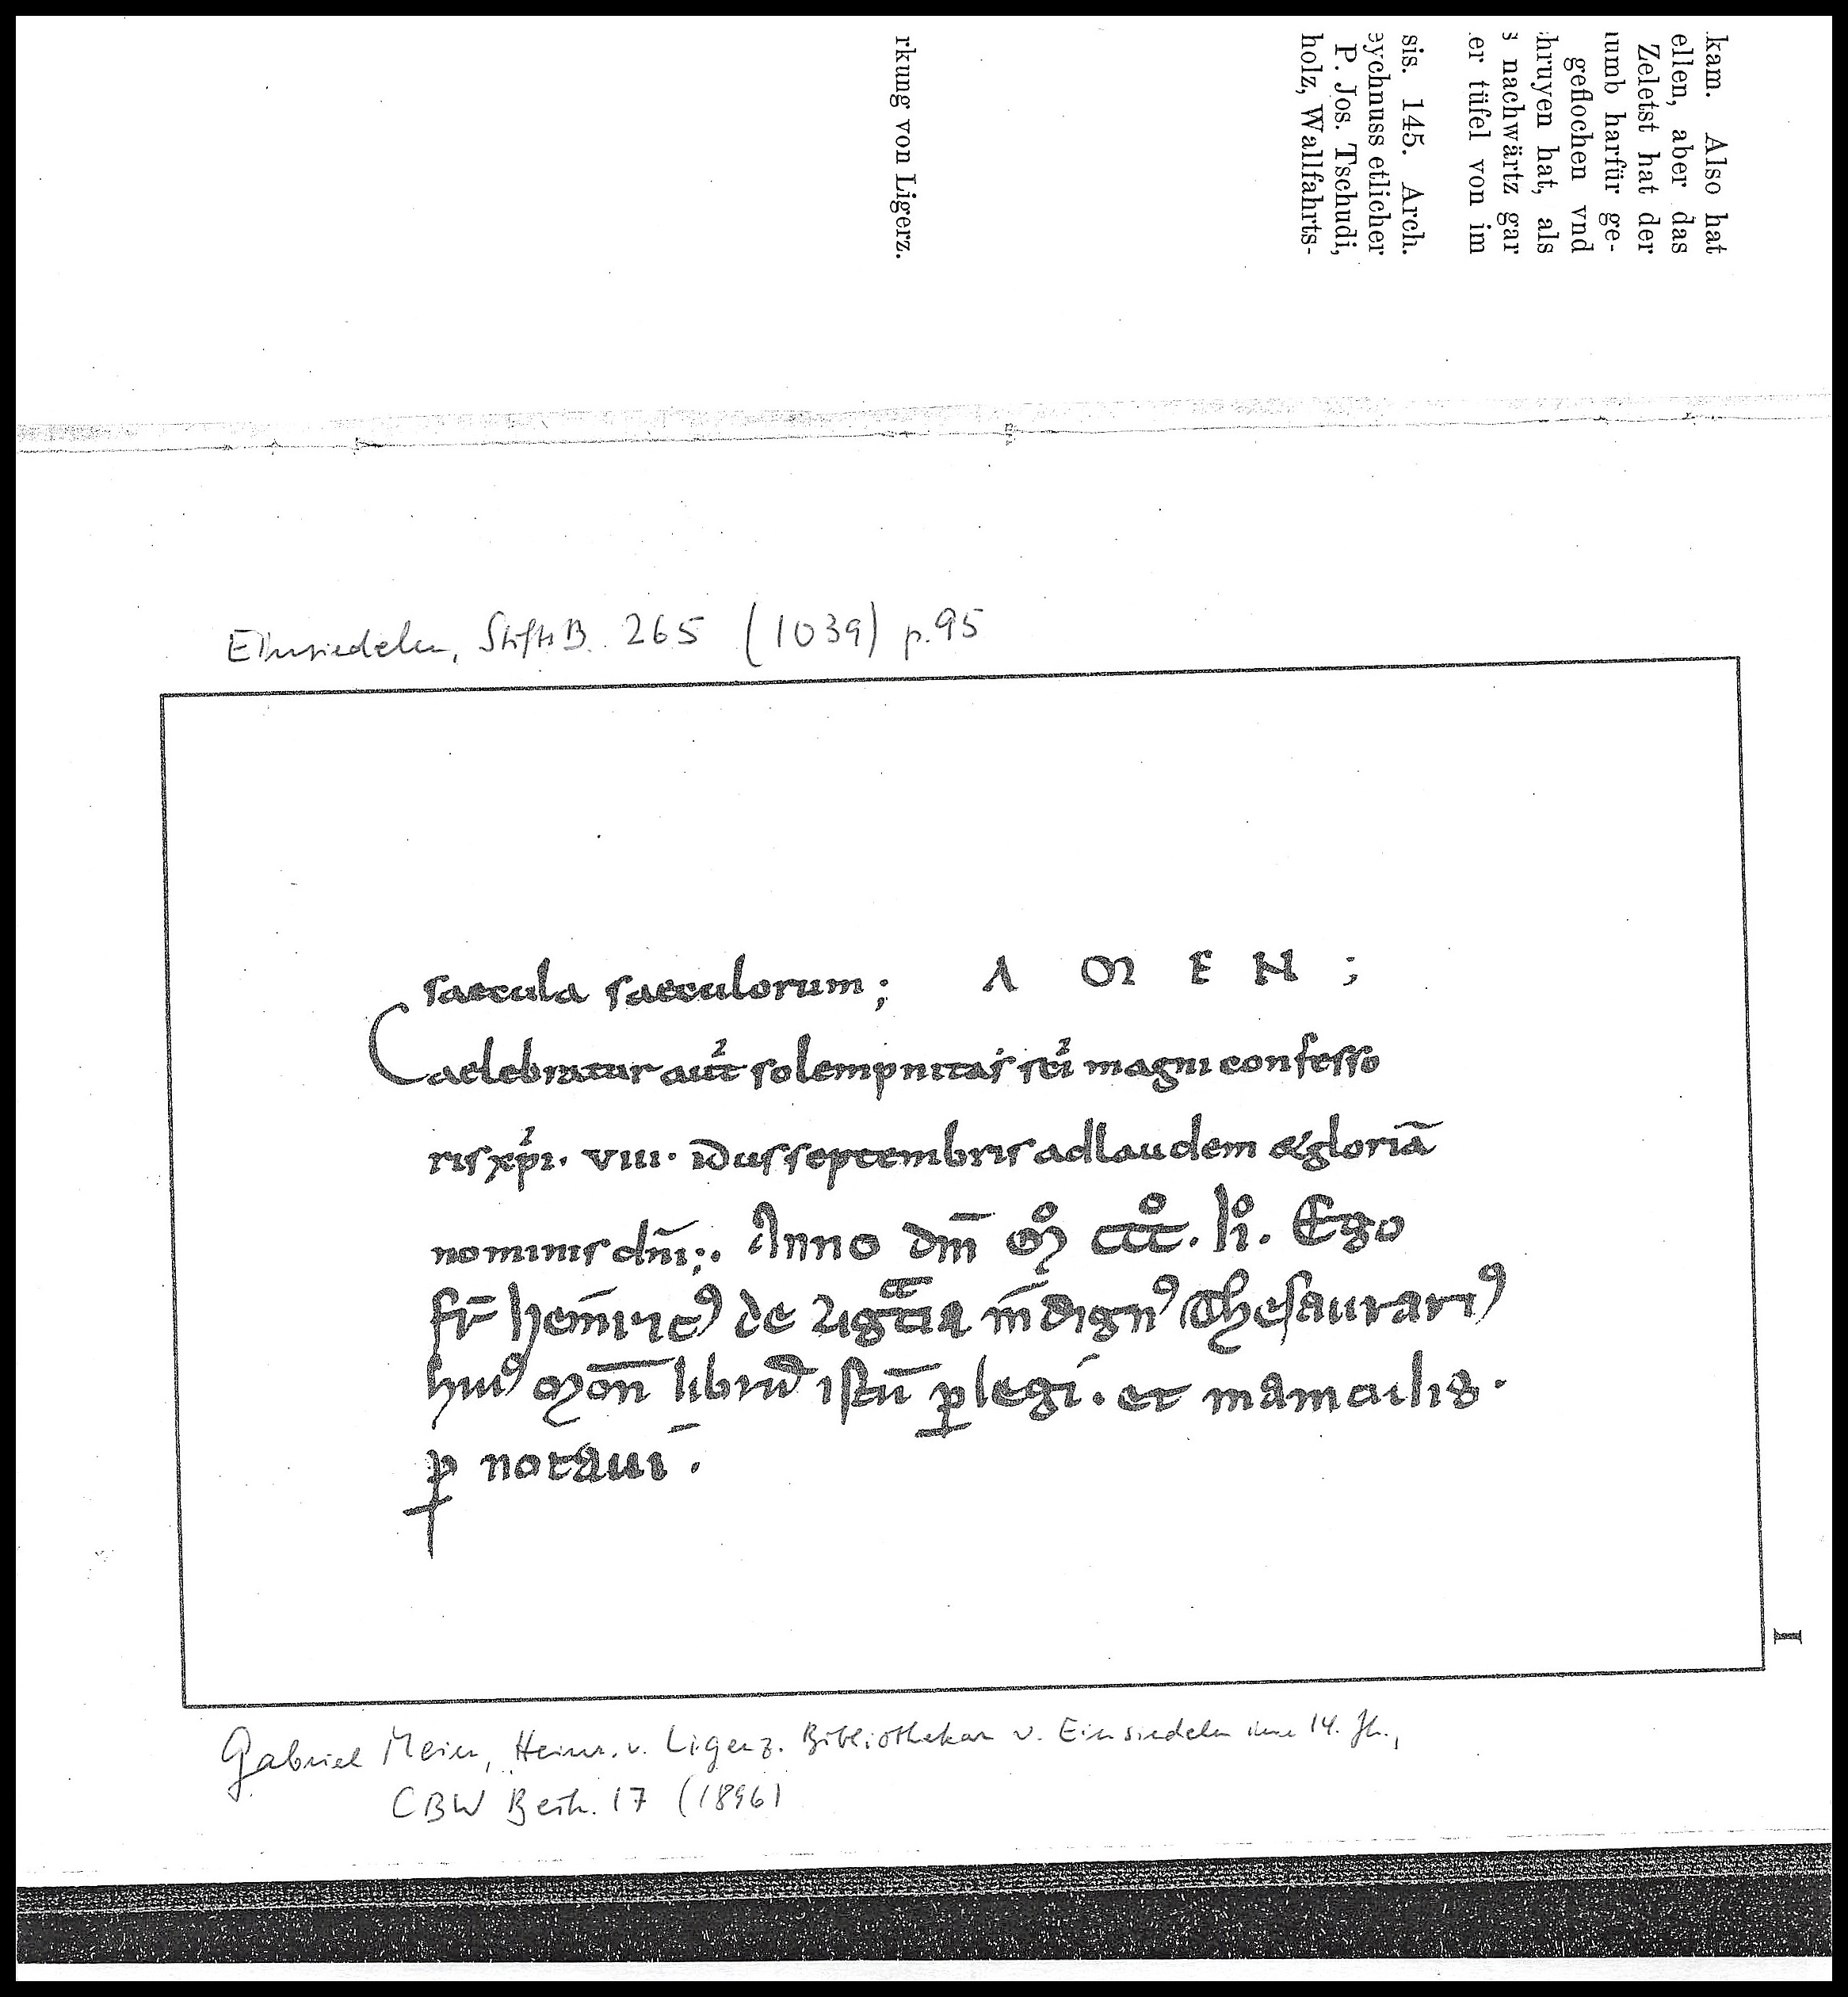 kam. Also hat
ellen, aber das
Zeletst hat der
umb harfür ge-
geflochen vnd
hruyen hat, als
s nachwärtz gar
er tüfel von im
sis. 145. Arch.
eychnuss etlicher
P. Jos. Tschudi,
holz, Wallfahrts-
rkung von Ligerz.
Einsiedeln, StiftsB. 265 (1039) p. 95
saecula saeculorum; AMEN;
Caelebratur aut̄ solempnitas sc̄i magni confesso
ris xp̄i. VIII. idus septembris ad laudem & gloriā
nominis dn̄i;. Anno dm̄ Mº cccº. lıº. Ego
fr̄ heinricꝰ de Ligͨcia īndignꝰ Thesaurariꝰ
huiꝰ Mon̄ librū istū ꝑlegi. et maniculis.
ꝑ notaui.
I
Gabriel Meier, Heinr. v. Ligerz. Bibliothekar v. Einsiedeln im 14. Jh.,
CBW Beih. 17 (1896)